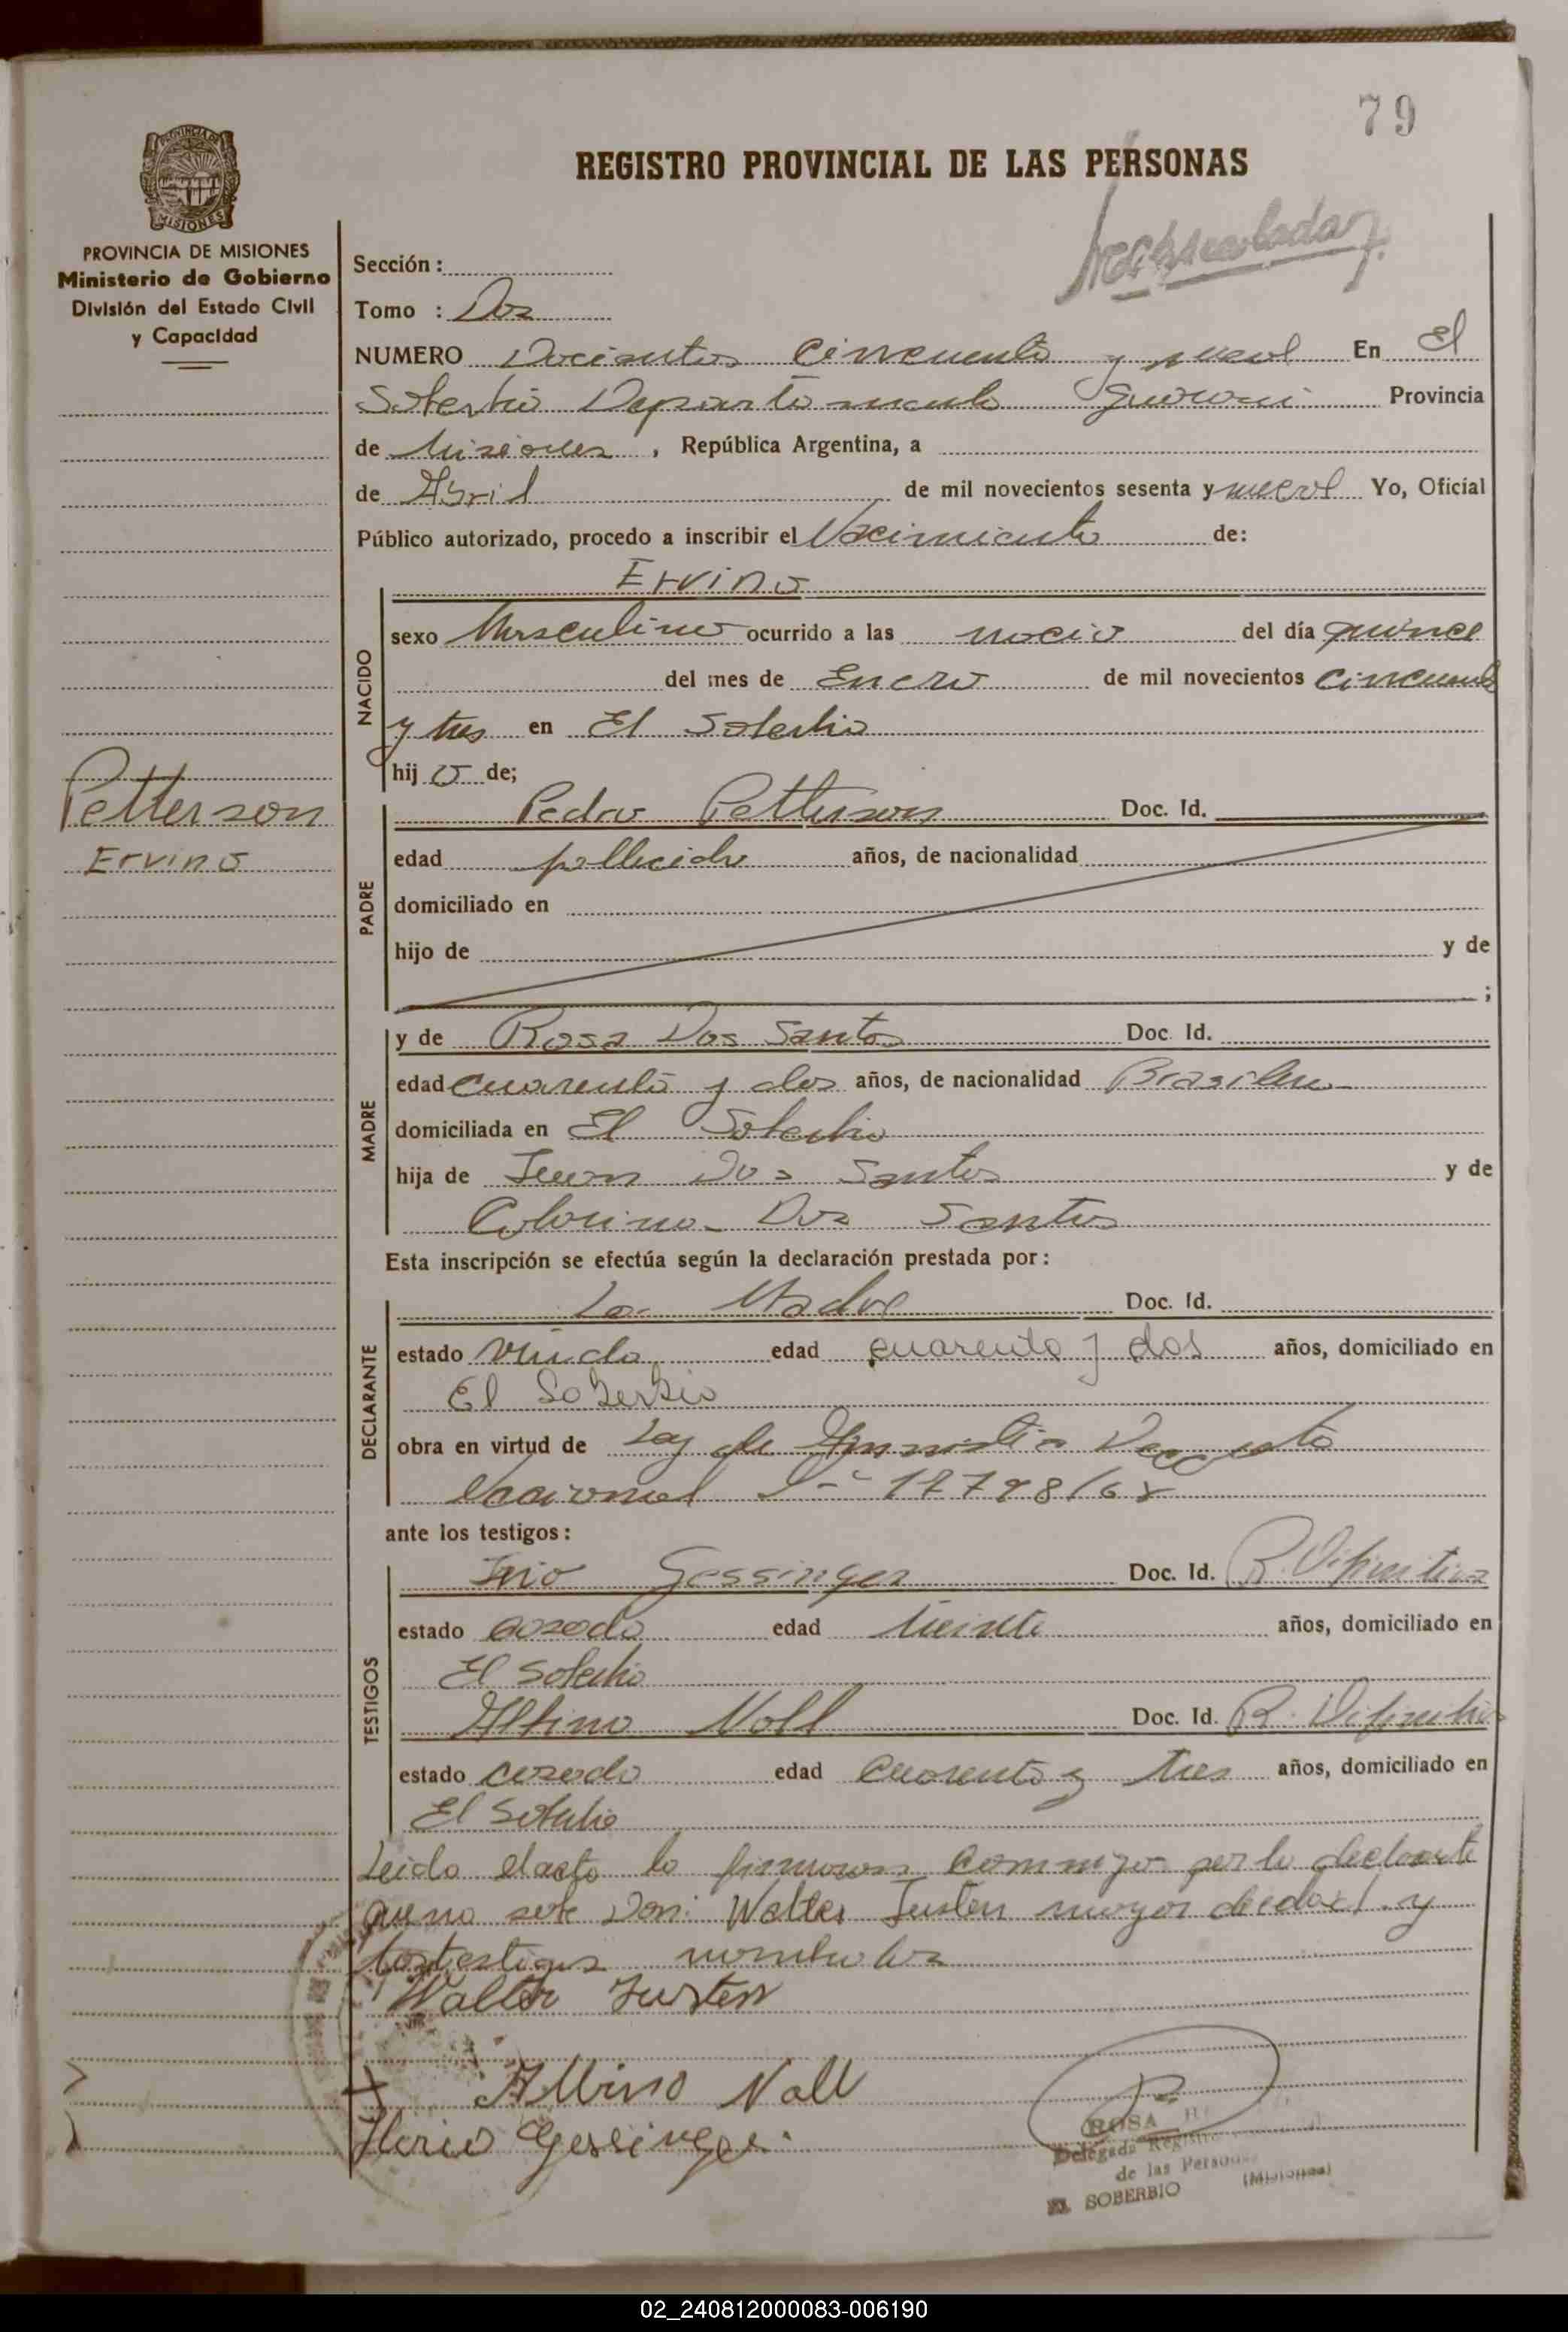 79
REGISTRO PROVINCIAL DE LAS PERSONAS
PROVINCIA DE MISIONES
Ministerio de Gobierno
División del Estado Civil
y Capacidad
Sección :
Tomo : Dos
NUMERO Docientos cincuenta y nueve En El
Soberbio Departamento Guarani Provincia
de Misiones , República Argentina, a
de Abril de mil novecientos sesenta y nueve Yo, Oficial
Público autorizado, procedo a inscribir el Nacimiento de:
Ervino
NACIDO
sexo Masculino ocurrido a las nacio del día quince
del mes de Enero de mil novecientos cincuenta
y tres en El Soberbio
hij o de;
Petterson
Ervino
PADRE
Pedro Petterson Doc. Id.
edad fallecido años, de nacionalidad
domiciliado en
hijo de y de
;
MADRE
y de Rosa Dos Santos Doc. Id.
edad cuarenta y dos años, de nacionalidad Brasilera
domiciliada en El Soberbio
hija de Juan Dos Santos y de
Dos Santos
Esta inscripción se efectúa según la declaración prestada por :
DECLARANTE
La Madre Doc. Id.
estado viuda edad cuarenta y dos años, domiciliado en
El Soberbio
obra en virtud de Ley de Amnistia Decreto
Nacional 17798/68
ante los testigos :
TESTIGOS
Gessinger Doc. Id.
estado casado edad años, domiciliado en
El Soberbio
Albino Noll Doc. Id.
estado casado edad cuarenta y tres años, domiciliado en
El Soberbio
Leida el acta la firmaron conmigo por la declarante
que no sabe Don: Walter Justen mayor de edad y
los testigos nombrados
Walter Justen
Albino Noll
Gessinger
ROSA
Delegada Registro
de las Personas
EL SOBERBIO (Misiones)
02_240812000083-006190